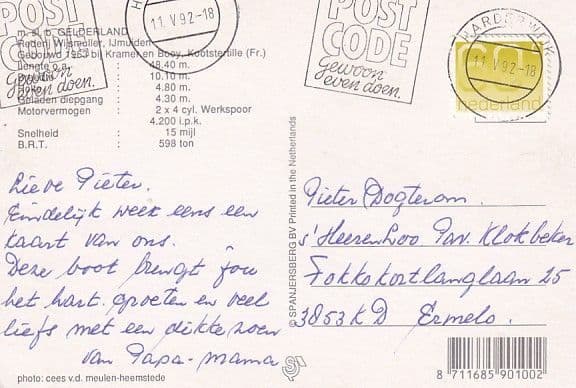 POST
CODE
Gewoon
even doen.
11.V.92-18
POST
CODE
Gewoon
even doen.
HARDERWIJK
11.V.92-18
60
nederland
m.s. b. GELDERLAND
Rederij Wijsmuller, IJmuiden
Gebouwd 1963 bij Kramer en Booy, Kootstertille (Fr.)
Lengte o.a. : 48.40 m.
Breedte : 10.10 m.
Holte : 4.80 m.
Geladen diepgang : 4.30 m.
Motorvermogen : 2 x 4 cyl. Werkspoor
4.200 i.p.k.
Snelheid : 15 mijl
B.R.T. : 598 ton
Lieve Pieter.
Eindelijk weer eens een
kaart van ons.
Deze boot brengt jou
het hart. groeten en veel
liefs met een dikke zoen
van Papa - mama
photo: cees v.d. meulen-heemstede
© SPANJERSBERG BV Printed in the Netherlands
Pieter Dogterom.
's Heerenloo Pav. Klokbeker
Fokko Kortlanglaan 25
3853 KD Ermelo.
8 711685 901002